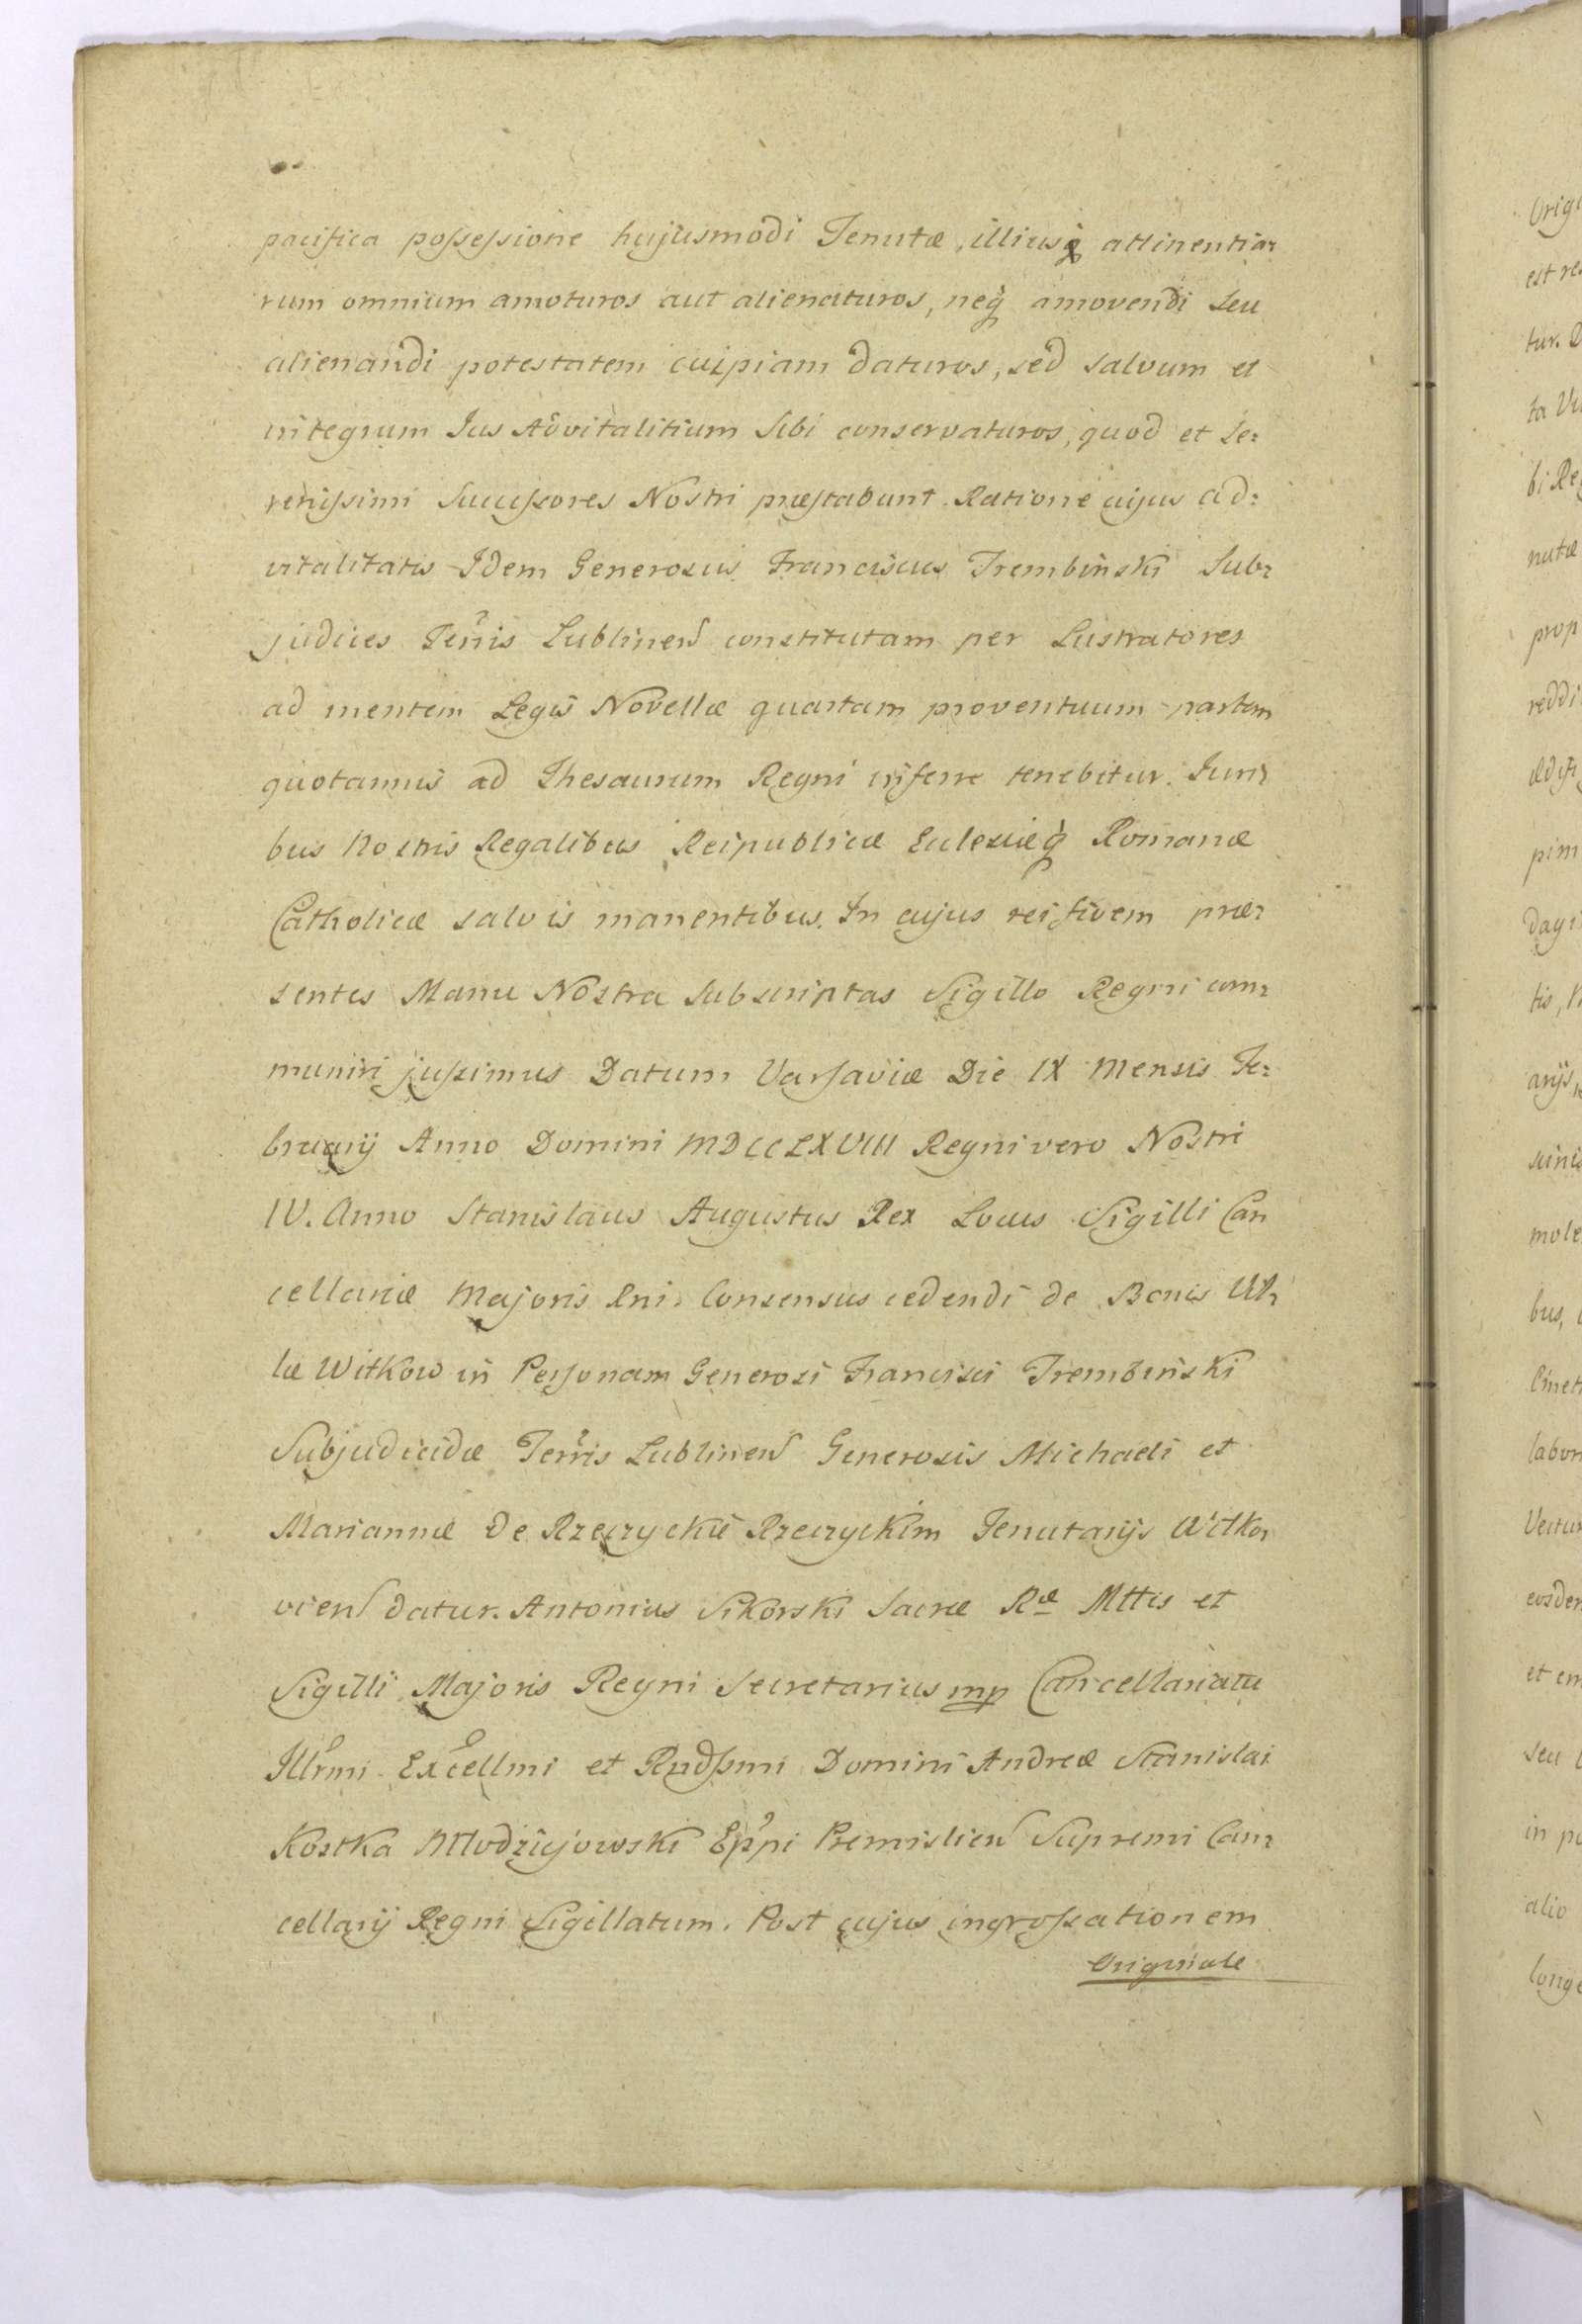 pacifica possessione hujusmodi Tenutæ, illiusq́ attinentia=
rum omnium amoturos aut alienaturos, neq́ amovendi seu
alienandi potestatem cuipiam daturos, sed salvum et
integrum Jus Advitalitium Sibi conservaturos, quod et Se=
renissimi Successores Nostri præstabunt. Ratione cujus ad=
vitalitatis Idem Generosus Franciscus Trembinski Sub=
judices Terris Lublinens constitutam per Lustratores
ad mentem Legis Novellæ quartam proventuum partem
quotannis ad Thesaurum Regni inferre tenebitur. Juri=
bus Nostris Regalibus Reipublicæ Eclesiæq́ Romanæ
Catholicæ salvis manentibus. In cujus rei fidem præ=
sentes Manu Nostra Subscriptas Sigillo Regni com=
muniri jussimus Datum Varsaviæ Die IX Mensis Fe=
bruarij Anno Domini MDCCLXVIII Regni vero Nostri
IV. Anno Stanislaus Augustus Rex Locus Sigilli Can
cellariæ Majoris Rni. Consensus cedendi de Bonis Vil=
læ Witkow in Personam Generosi Francisci Trembinski
Subjudicidæ Terris Lublinens Generosis Michaeli et
Mariannæ de Rzeczyckie Rzeczyckim Tenutarijs Witko=
viens datur. Antonius Sikorski Sacræ Ræ Mttis et
Sigilli Majoris Regni Secretarius mp Cancellariatu
Illrmi Excellmi et Rndssmi Domini Andreæ Stanislai
Kostka Młodziejowski Eppi Premisliens Supremi Can=
cellarij Regni Sigillatum. Post cujus ingrossationem
Originale
Orig
est re
tur. D
ta Vi
bi Reg
nutæ
prop
reddi
ædifi
pim
tis,
arijs,
mole
bus,
labor
eosdem
et em
seu
in po
alio
longe